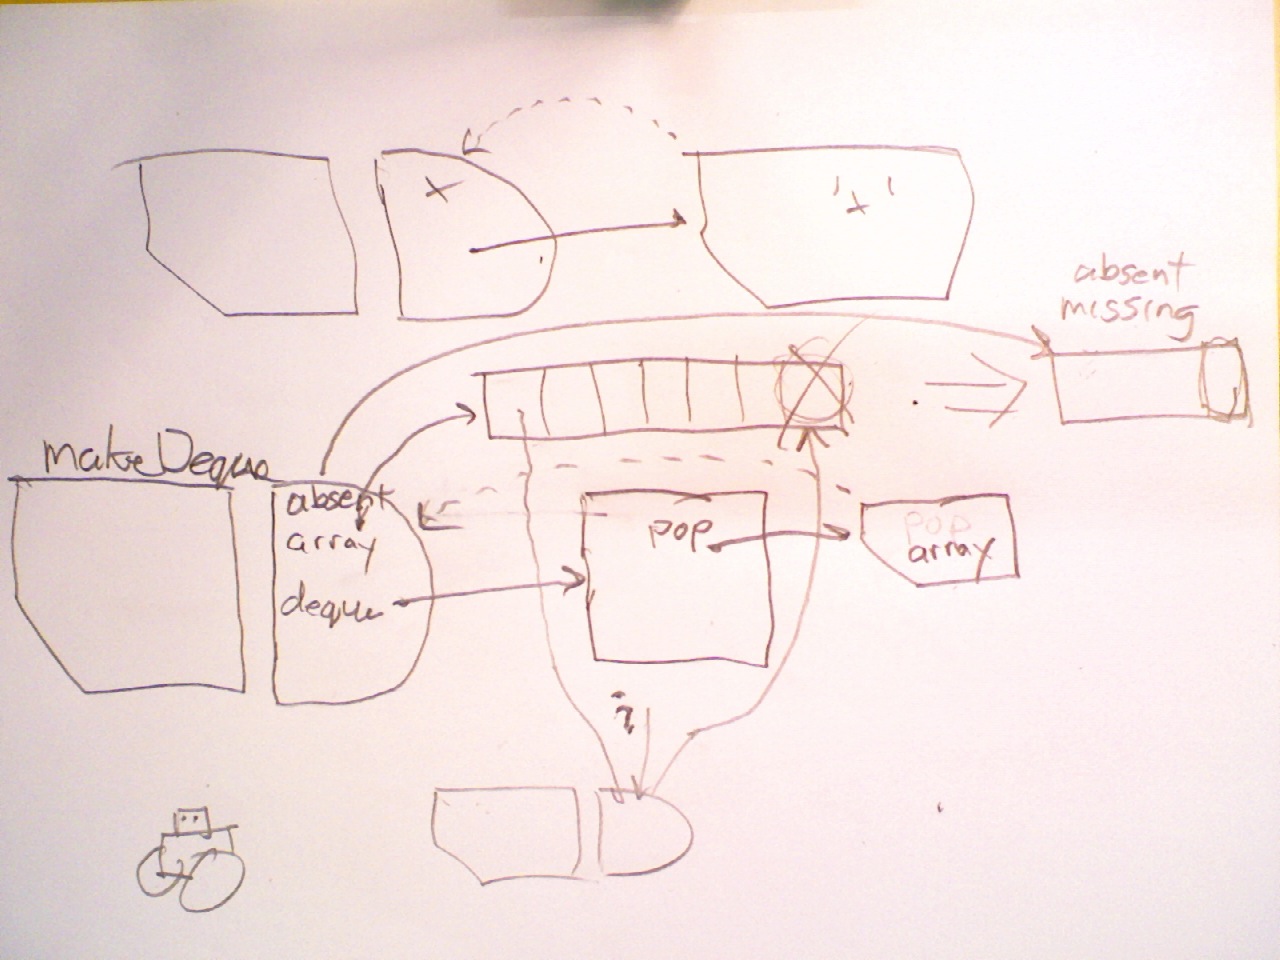 x
'x'
absent
missing
makeDeque
absent
array
deque
pop
pop
array
i